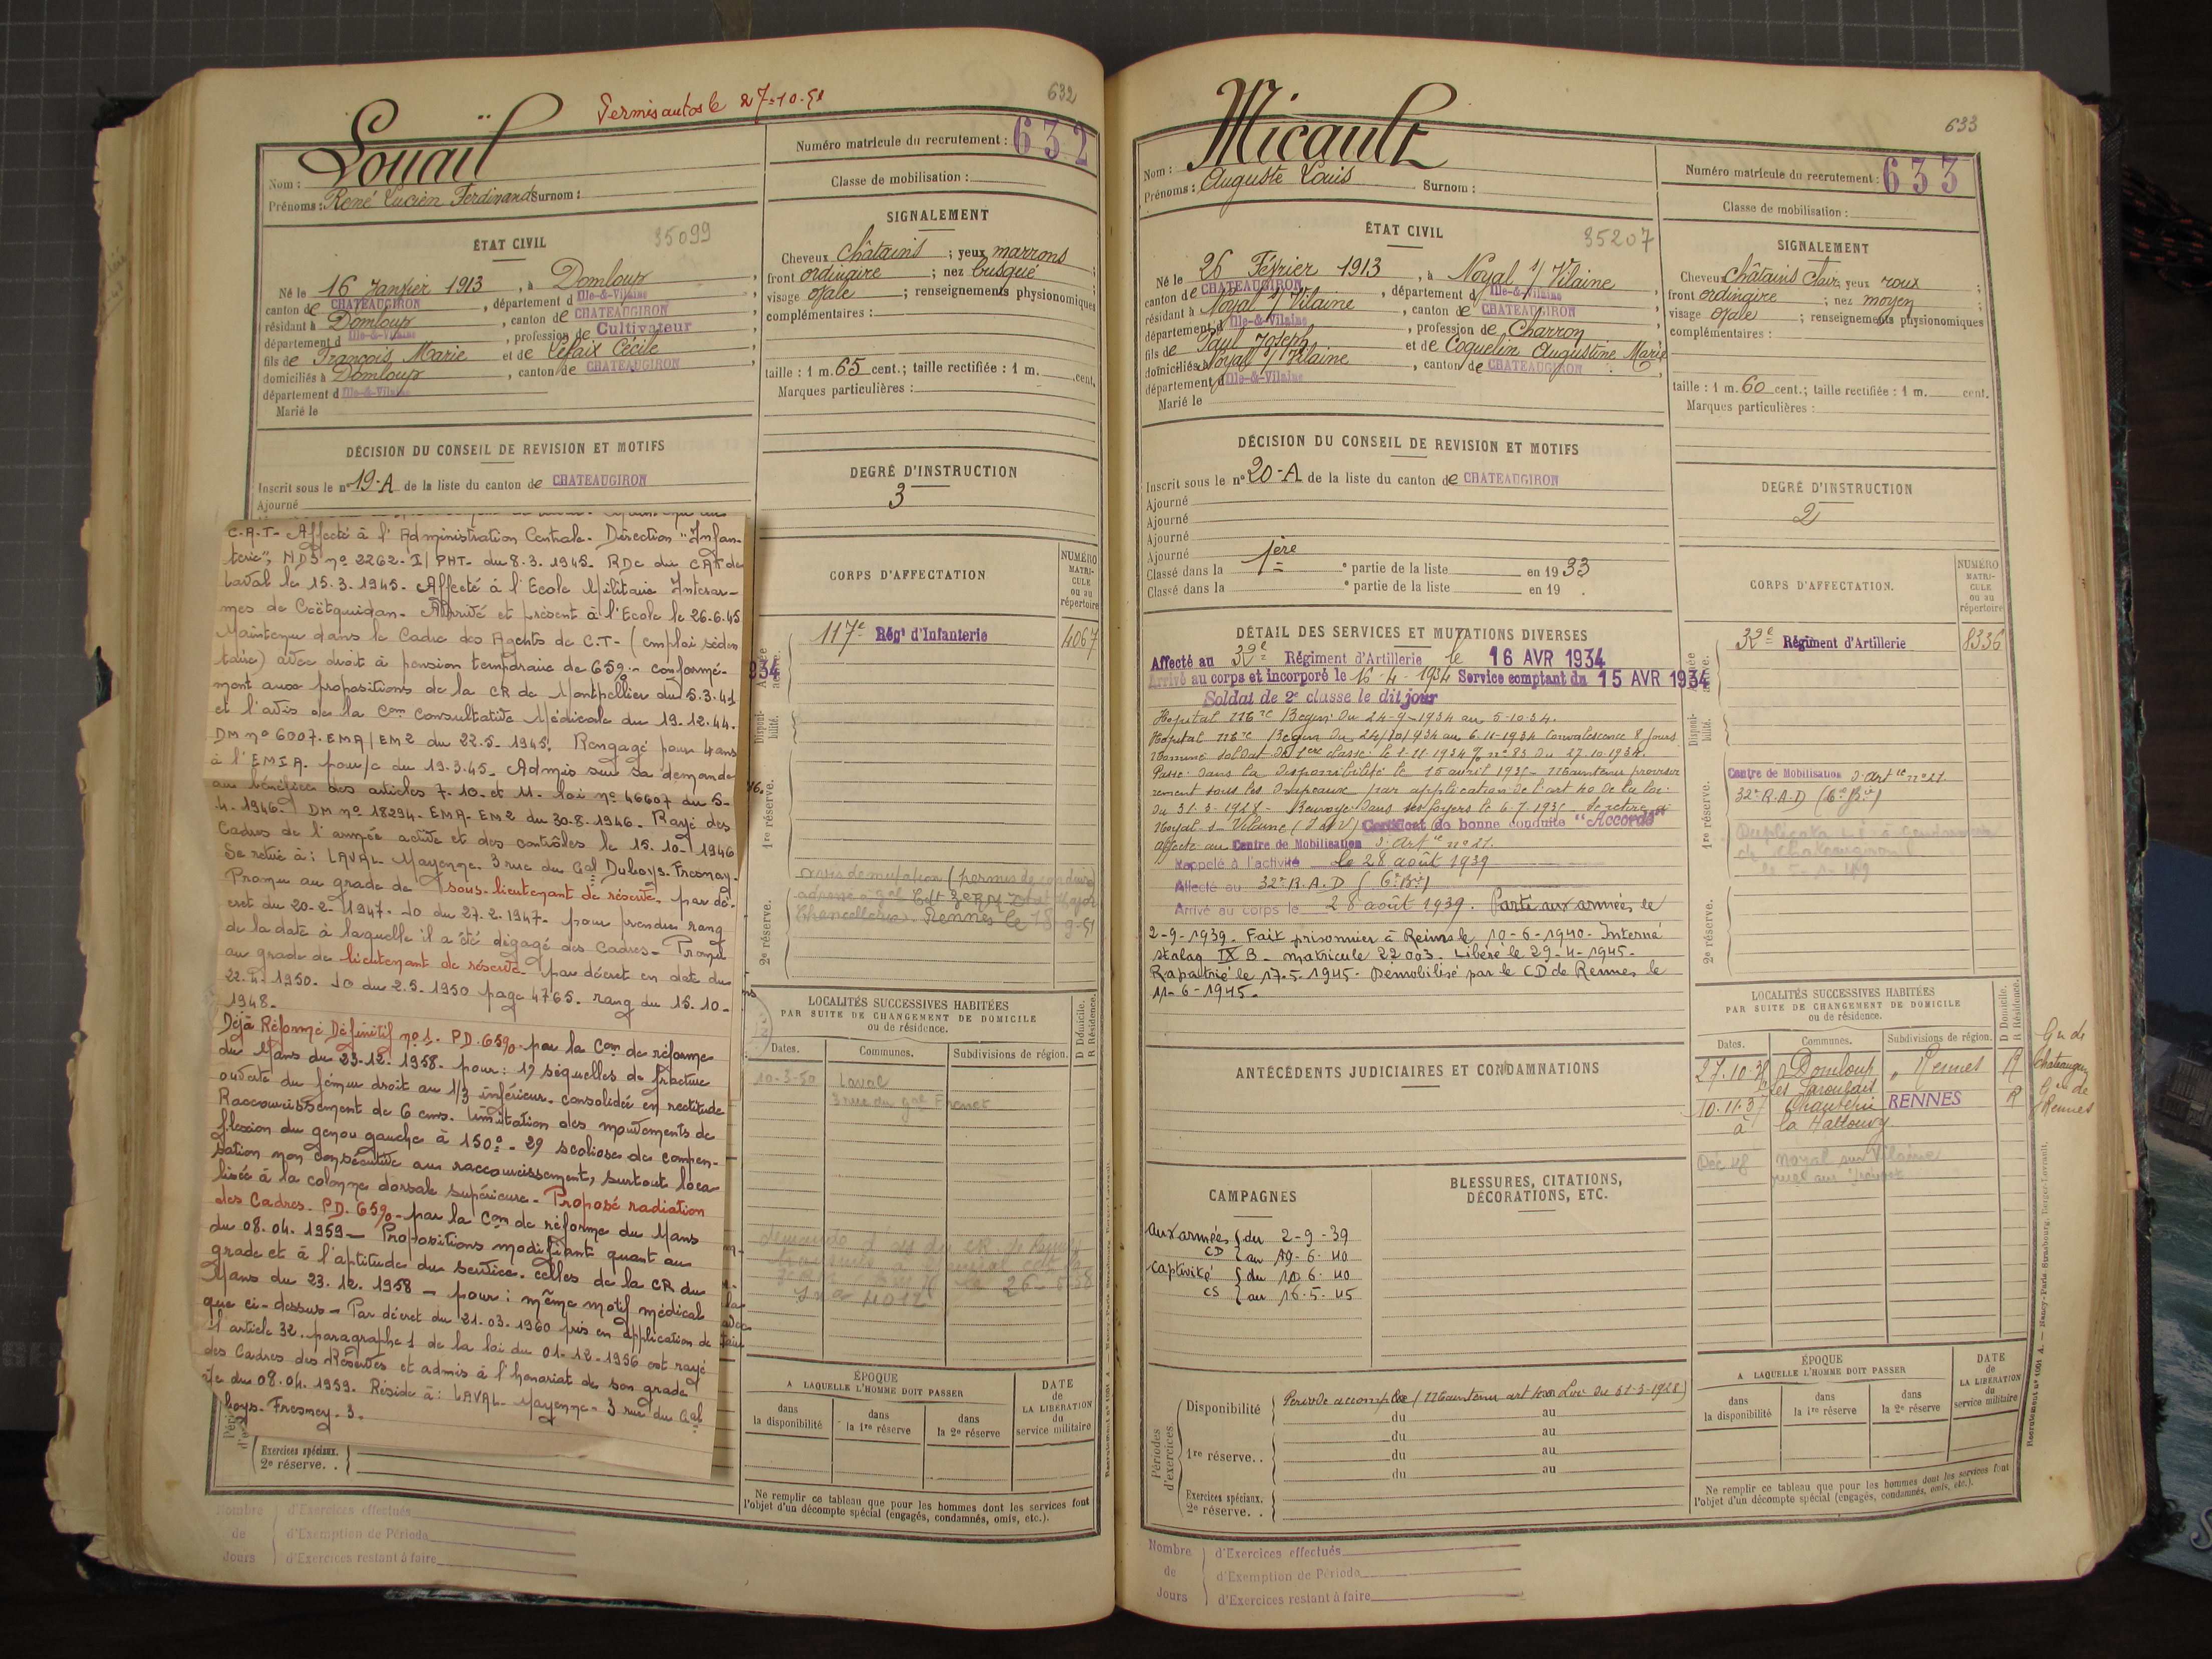 Permis autos le 27-10-51
632
Louaïl
Nom :
Prénoms : René Lucien Ferdinand Surnom :
Numéro matricule du recrutement : 632
Classe de mobilisation :
ÉTAT CIVIL
35099
Né le 16 Janvier 1913, à Domloup,
canton de CHATEAUGIRON, département d Ille-&-Vilaine
résidant à Domloup, canton de CHATEAUGIRON
département d Ille-&-Vilaine, profession de Cultivateur
fils de François Marie et de Lefaix Cécile
domiciliés à Domloup, canton de CHATEAUGIRON,
département d Ille-&-Vilaine
Marié le
SIGNALEMENT
Cheveux châtains ; yeux marrons ;
front ordinaire ; nez busqué ;
visage ovale ; renseignements physionomiques
complémentaires :
taille : 1 m. 65 cent. ; taille rectifiée : 1 m. cent.
Marques particulières :
DÉCISION DU CONSEIL DE REVISION ET MOTIFS
Inscrit sous le n° 19-A de la liste du canton de CHATEAUGIRON
Ajourné
DEGRÉ D'INSTRUCTION
3
C.A.T- Affecté à l'Administration Centrale- Direction "Infan-
terie", NDS n° 2262- I/PHT- du 8.3.1945- RDC du CAT de
Laval le 15.3.1945- Affecté à l'Ecole Militaire Interar-
mes de Coëtquidan- Arrivé et présent à l'Ecole le 26.6.45
Maintenu dans le Cadre des Agents de C.T- (emploi séden
taire) avec droit à pension temporaire de 65%- conformé-
ment aux propositions de la CR de Montpellier du 5.3.41
et l'avis de la Com Consultative Médicale du 19.12.44.
DM n° 6007.EMA/EM2 du 22.5-1945. Rengagé pour 4 ans
à l'EMIA. pour/c du 19.3.45- Admis sur sa demande
au bénéfice des articles 7.10. et 11. loi n° 46607 du 5-
4-1946- DM n° 18294- EMA- EM2 du 30-8-1946- Rayé des
Cadres de l'armée active et des contrôles le 15.10-1946
Se retire à : LAVAL- Mayenne. 3 rue du Gal Duboys-Fresney-
Promu au grade de sous-lieutenant de réserve- par dé-
cret du 20-2-1947- JO du 27.2.1947- pour prendre rang
de la date à laquelle il a été dégagé des Cadres- Promu
au grade de lieutenant de réserve- par décret en date du
22.4.1950. JO du 2.5.1950 page 4765. rang du 15.10-
1948-
Déjà Réformé Définitif n° 1. PD.65%- par la Com de réforme
du Mans du 23-12.1958- pour : 1) séquelles de fracture
ouverte du fémur droit au 1/3 inférieur. consolidée en rectitude
Raccourcissement de 6 cms. limitation des mouvements de
flexion du genou gauche à 150°- 2) scoliose de compen-
sation non consécutive au raccourcissement, surtout loca
lisée à la colonne dorsale supérieure- Proposé radiation
des Cadres- PD.65%- par la Com de réforme du Mans
du 08.04.1959- Propositions modifiant quant au
grade et à l'aptitude du service. celles de la CR du
Mans du 23.12.1958- pour : même motif médical
que ci-dessus- Par décret du 21.03.1960 pris en application de
l'article 32. paragraphe 1 de la loi du 01-12-1956 est rayé
des Cadres des Réserves et admis à l'honorariat de son grade
p/c du 08.04.1959. Réside à : LAVAL- Mayenne- 3 rue du Gal
boys-Fresney-3.
Exercices spéciaux.
2e réserve. .
Nombre de Jours
d'Exercices effectués
d'Exemption de Période
d'Exercices restant à faire
CORPS D'AFFECTATION
NUMÉRO MATRI-CULE ou au répertoire
117e Régt d'Infanterie 4067
934
Armée active.
Disponibilité.
1re réserve.
2e réserve.
avis de mutation (permis de conduire)
Rennes le 18-9-51
LOCALITÉS SUCCESSIVES HABITÉES
PAR SUITE DE CHANGEMENT DE DOMICILE
ou de résidence.
D Domicile.
R Résidence.
Dates. Communes. Subdivisions de région.
10-3-50 Laval
3 rue du gal
ÉPOQUE
A LAQUELLE L'HOMME DOIT PASSER
dans la disponibilité
dans la 1re réserve
dans la 2e réserve
DATE de LA LIBÉRATION du service militaire
Ne remplir ce tableau que pour les hommes dont les services font
l'objet d'un décompte spécial (engagés, condamnés, omis, etc.).
633
Micault
Nom :
Prénoms : Auguste Louis Surnom :
Numéro matricule du recrutement : 633
Classe de mobilisation :
ÉTAT CIVIL
35207
Né le 26 Février 1913, à Noyal s/ Vilaine
canton de CHATEAUGIRON, département d Ille-&-Vilaine
résidant à Noyal s/ Vilaine, canton de CHATEAUGIRON
département d Ille-&-Vilaine, profession de Charron
fils de Paul Joseph et de Coquelin Augustine Marie
domiciliés à Noyal s/ Vilaine, canton de CHATEAUGIRON,
département d Ille-&-Vilaine
Marié le
SIGNALEMENT
Cheveux châtains clair, yeux roux ;
front ordinaire ; nez moyen ;
visage ovale ; renseignements physionomiques
complémentaires :
taille : 1 m. 60 cent. ; taille rectifiée : 1 m. cent.
Marques particulières :
DÉCISION DU CONSEIL DE REVISION ET MOTIFS
Inscrit sous le n° 20-A de la liste du canton de CHATEAUGIRON
Ajourné
Ajourné
Ajourné
Ajourné
Classé dans la 1ère partie de la liste en 1933
Classé dans la e partie de la liste en 19 .
DEGRÉ D'INSTRUCTION
2
DÉTAIL DES SERVICES ET MUTATIONS DIVERSES
Affecté au 32e Régiment d'Artillerie le 16 AVR 1934
Arrivé au corps et incorporé le 16-4-1934 Service comptant du 15 AVR 1934
Soldat de 2e classe le dit jour
Hopital Mre Begin du 24-9-1934 au 5-10-34.
Hopital Mre Begin du 24/10/934 au 6-11-1934 Convalescence 8 jours
Nommé soldat de 1ère classe le 1-11-1934 n° 85 du 27.10.1934.
Passé dans la disponibilité le 15 avril 1935- Maintenu provisoi
rement sous les drapeaux par application de l'art 40 de la loi
du 31-3-1928- Renvoyé dans ses foyers le 6-7-1935 Se retire à
Noyal-s-Vilaine (I et V) Certificat de bonne conduite "Accordé"
affecté au Centre de Mobilisation d'Artie n° 21.
Rappelé à l'activité le 28 août 1939
Affecté au 32e R.A.D (6e Bie)
Arrivé au corps le 28 août 1939. Parti aux armées le
2-9-1939. Fait prisonnier à Reims le 10-6-1940- Interné
stalag IX B- matricule 22003. Libéré le 29-4-1945-
Rapatrié le 17.5.1945. Démobilisé par le CD de Rennes le
11-6-1945.
CORPS D'AFFECTATION.
NUMÉRO MATRI-CULE ou au répertoire
32e Régiment d'Artillerie 8336
Armée active.
Disponibilité.
1re réserve.
2e réserve.
Centre de Mobilisation d'Artie n° 21.
32e R.A.D (6e Bie)
Duplicata
ANTÉCÉDENTS JUDICIAIRES ET CONDAMNATIONS
CAMPAGNES
BLESSURES, CITATIONS, DÉCORATIONS, ETC.
aux armées { du 2-9-39
CD { au 19-6-40
captivité { du 10.6.40
CS { au 16.5.45
LOCALITÉS SUCCESSIVES HABITÉES
PAR SUITE DE CHANGEMENT DE DOMICILE
ou de résidence.
D Domicile.
R Résidence.
Dates. Communes. Subdivisions de région.
27.10.36 Domloup Rennes R Gie de
10.11.37 Chantepie RENNES R Gie de Rennes
à la Hallouvry
Déc 48 Noyal sur Vilaine
Périodes d'exercices.
Disponibilité
Période accomplie (Maintenu art 40 Loi du 31-3-1928)
du au
du au
1re réserve. . du au
du au
Exercices spéciaux.
2e réserve. .
ÉPOQUE
A LAQUELLE L'HOMME DOIT PASSER
dans la disponibilité
dans la 1re réserve
dans la 2e réserve
DATE de LA LIBÉRATION du service militaire
Ne remplir ce tableau que pour les hommes dont les services font
l'objet d'un décompte spécial (engagés, condamnés, omis, etc.).
Nombre de Jours
d'Exercices effectués
d'Exemption de Période
d'Exercices restant à faire